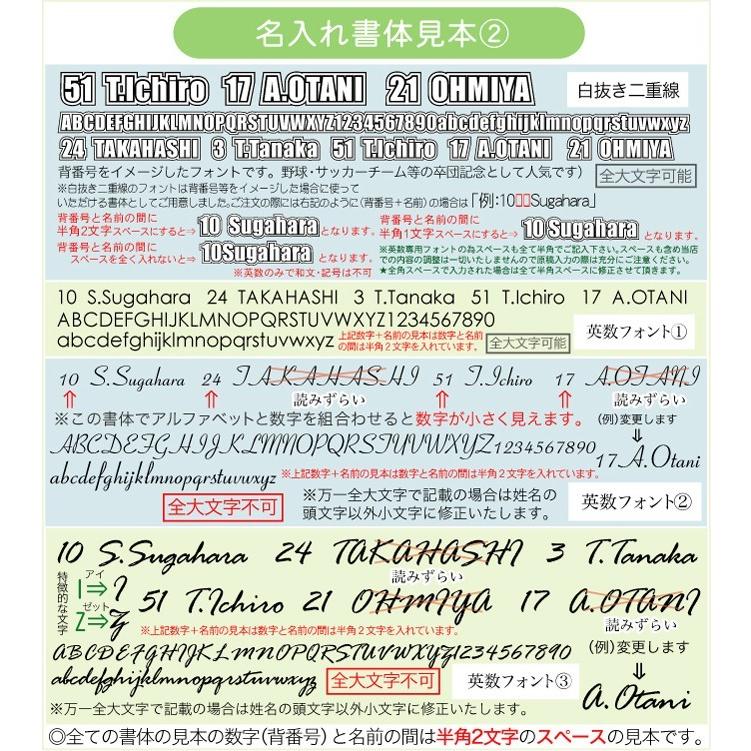 名入れ書体見本②
51 T.Ichiro 17 A.OTANI 21 OHMIYA
白抜き二重線
ABCDEFGHIJKLMNOPQRSTUVWXYZ1234567890abcdefghijklmnopqrstuvwxyz
24 TAKAHASHI 3 T.Tanaka 51 T.Ichiro 17 A.OTANI 21 OHMIYA
背番号をイメージしたフォントです。野球・サッカーチーム等の卒団記念として人気です)
全大文字可能
※白抜き二重線のフォントは背番号等をイメージした場合に使って
いただける書体としてご用意しました。ご注文の際には右記のように(背番号+名前)の場合は「例:10□□Sugahara」
背番号と名前の間に
半角2文字スペースにすると⇒ 10 Sugahara となります。
背番号と名前の間に
半角1文字スペースにすると⇒ 10 Sugahara となります。
背番号と名前の間に
スペースを全く入れないと⇒ 10Sugahara となります。
※英数のみで和文・記号は不可
※英数専用フォントの為スペースも全て半角でご記入下さい。スペースも含め当店
での内容の調整は一切いたしませんので原稿入力の際は充分にご注意ください。
★全角スペースで入力された場合は全て半角スペースに修正させて頂きます。
10 S.Sugahara 24 TAKAHASHI 3 T.Tanaka 51 T.Ichiro 17 A.OTANI
ABCDEFGHIJKLMNOPQRSTUVWXYZ1234567890
英数フォント①
abcdefghijklmnopqrstuvwxyz
上記数字+名前の見本は数字と名前
の間は半角2文字を入れています。
全大文字可能
10 S.Sugahara 24 TAKAHASHI 51 T.Ichiro 17 A.OTANI
⇑ ⇑ 読みずらい ⇑ ⇑ 読みずらい
※この書体でアルファベットと数字を組合わせると数字が小さく見えます。
(例)変更します
⇓
ABCDEFGHIJKLMNOPQRSTUVWXYZ1234567890
17 A.Otani
abcdefghijklmnopqrstuvwxyz
※上記数字+名前の見本は数字と名前の間は半角2文字を入れています。
全大文字不可
※万一全大文字で記載の場合は姓名の
頭文字以外小文字に修正いたします。
英数フォント②
10 S.Sugahara 24 TAKAHASHI 3 T.Tanaka
読みずらい
特徴的な文字
アイ
I⇒I
ゼット
Z⇒Z
51 T.Ichiro 21 OHMIYA 17 A.OTANI
※上記数字+名前の見本は数字と名前の間は半角2文字を入れています。
読みずらい
(例)変更します
⇓
A.Otani
ABCDEFGHIJKLMNOPQRSTUVWXYZ1234567890
abcdefghijklmnopqrstuvwxyz
全大文字不可
英数フォント③
※万一全大文字で記載の場合は姓名の頭文字以外小文字に修正いたします。
◎全ての書体の見本の数字(背番号)と名前の間は半角2文字のスペースの見本です。